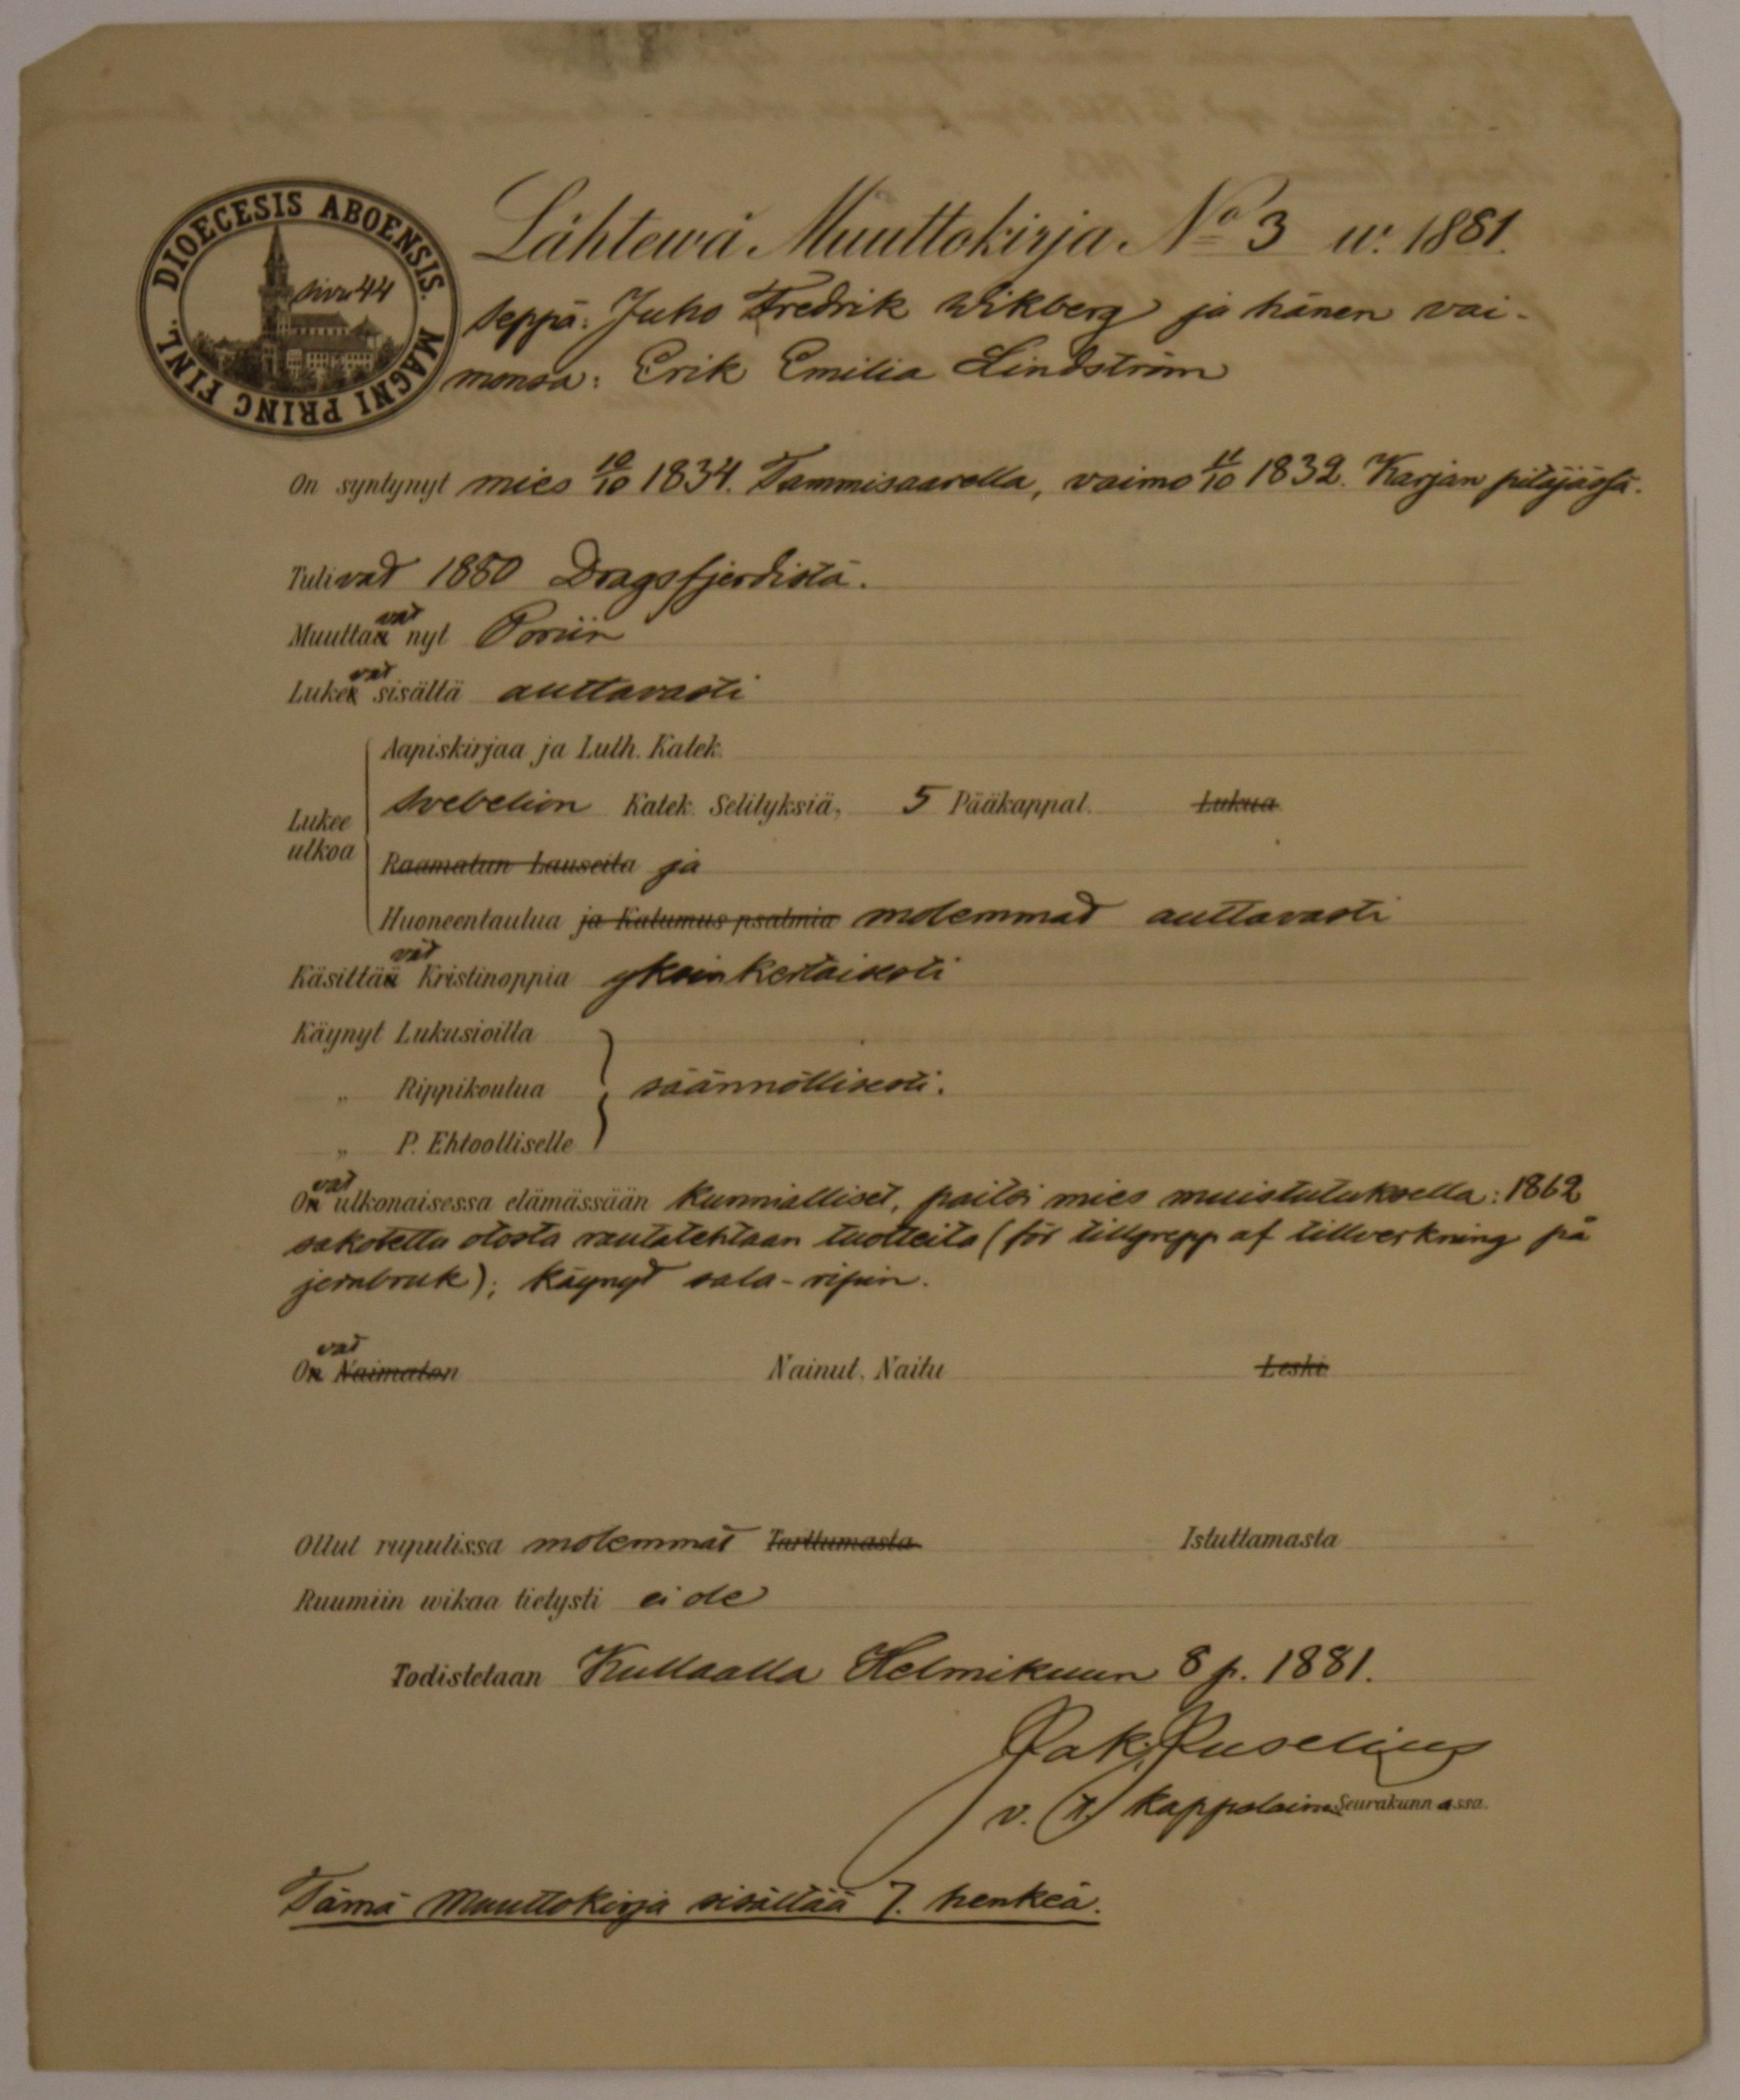 DIOECESIS ABOENSIS. MAGNI PRINC FINL.
sivu 44
Lähtewä Muuttokirja No 3 w. 1881.
Seppä: Juho Fredrik Wikberg ja hänen vai-
monsa: Erik Emilia Lindström
On syntynyt mies 10/10 1834. Tammisaarella, vaimo 11/10 1832. Karjan pitäjässä.
Tulivat 1880 Dragsfjerdistä.
Muuttaavat nyt Poriin
Lukevat sisältä auttavasti
Aapiskirjaa ja Luth. Katek.
Lukee ulkoa
Svebelion Katek. Selityksiä, 5 Pääkappal. Lukua.
Raamatun Lauseita ja
Huoneentaulua ja Katumus psalmia molemmat auttavasti
Käsittävät Kristinoppia yksinkertaisesti
Käynyt Lukusioilla
„ Rippikoulua säännöllisesti.
„ P. Ehtoolliselle
Ovat ulkonaisessa elämässään kunnialliset, paitsi mies muistutuksella: 1862
sakotettu otosta rautatehtaan tuotteita (för tillgrepp af tillverkning på
jernbruk); käynyt sala-ripin.
Ovat Naimaton Nainut, Naitu Leski
Ollut rupulissa molemmat Tarttumasta Istuttamasta
Ruumiin wikaa tietysti ei ole
Todistetaan Kullaalla Helmikuun 8 p. 1881.
v. kappalainen Seurakunnassa.
Tämä Muuttokirja sisältää 7. henkeä.